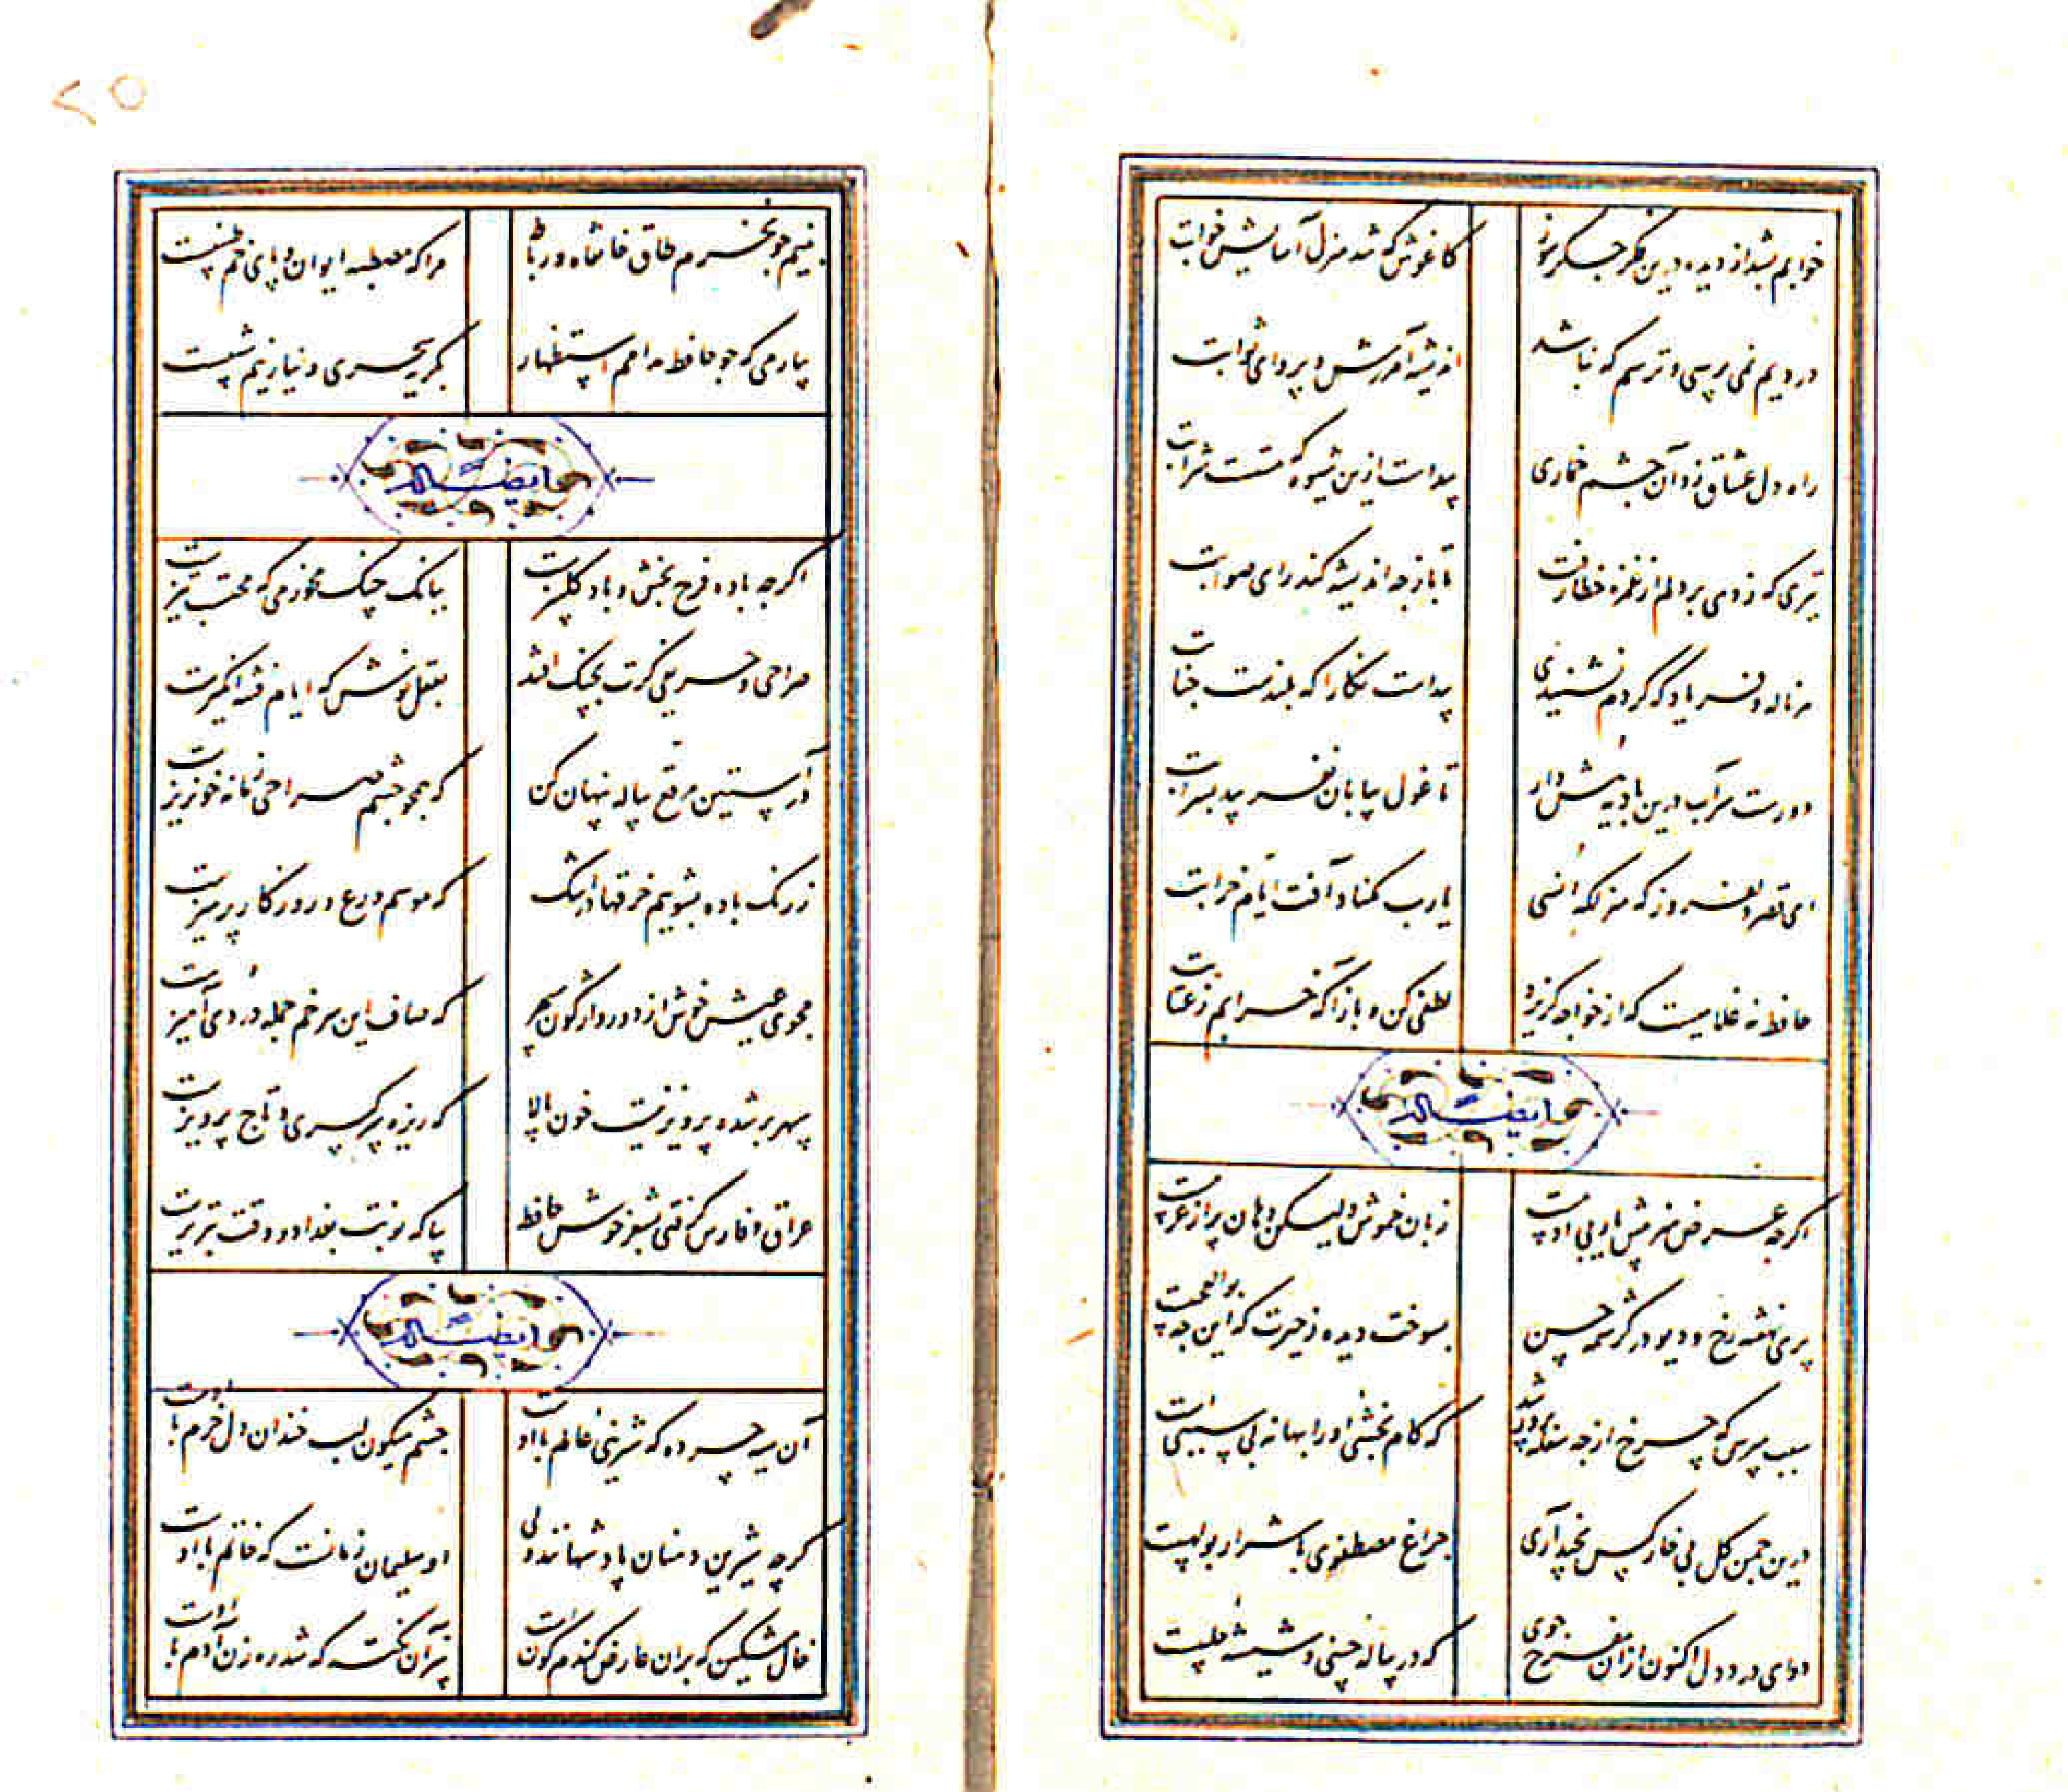 خوابم بشد از دیده درین فکر جگرسوز
کاغوش که شد منزل آسایش خوابت
درویم نمی پرسی و ترسم که نباشد
اندیشه آمرزش و پروای ثوابت
راه دل عشاق زد آن چشم خماری
پیداست ازین شیوه که مستست شرابت
تیری که زدی بر دلم از غمزه خطا رفت
تا باز چه اندیشه کند رای صوابت
هر ناله و فریاد که کردم نشنیدی
پیداست نگارا که بلندست جنابت
دورست سر آب درین بادیه هش دار
تا غول بیابان نفریبد بسرابت
ای قصر دلفروز که منزلکه انسی
یا رب مکناد آفت ایام خرابت
حافظ نه غلامیست که از خواجه گریزد
لطفی کن و باز آ که خرابم ز عتابت
ایضاله
اگرچه عرض هنر پیش یار بی ادبیست
زبان خموش ولیکن دهان پر از عربیست
پری نهفته رخ و دیو در کرشمه حسن
بسوخت دیده ز حیرت که این چه بوالعجبیست
سبب مپرس که چرخ از چه سفله پرور شد
که کام بخشی او را بهانه بی سببی است
درین چمن گل بی خار کس نچید آری
چراغ مصطفوی با شرار بولهبیست
دوای درد دل اکنون از آن مفرح جوی
که در پیاله چینی و شیشه حلبیست
۲۵
به نیم جو نخرم طاق خانقاه و رباط
مرا که مصطبه ایوان و پای خم طنبیست
بیار می که چو حافظ مدامم استظهار
بگریه سحری و نیاز نیم شبیست
ایضاله
اگرچه باده فرح بخش و باد گلبیزست
ببانک چنک مخور می که محتسب تیزست
صراحی و حریفی گرت بچنک افتد
بعقل نوش که ایام فتنه انگیزست
در آستین مرقع پیاله پنهان کن
که همچو چشم صراحی زمانه خونریزست
ز رنک باده بشویم خرقها در اشک
که موسم ورع و روزگار پرهیزست
مجوی عیش خوش از دور واژگون سپهر
که صاف این سر خم جمله دردی آمیزست
سپهر بر شده پرویزنیست خون پالا
که ریزه سر کسری و تاج پرویزست
عراق و فارس گرفتی بشعر خوش حافظ
بیا که نوبت بغداد و وقت تبریزست
ایضاله
آن سیه چرده که شیرینی عالم با اوست
چشم میگون لب خندان دل خرم با اوست
گرچه شیرین دهنان پادشهانند ولی
او سلیمان زمانست که خاتم با اوست
خال مشکین که بران عارض گندم گونست
سر آن نکته که شد ره زن آدم با اوست